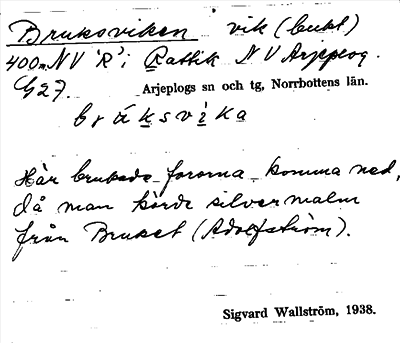 Bruksviken vik (bukt)
400m NV 'R' i Rattik NV Arjeplog.
G27. Arjeplogs sn och tg, Norrbottens län.
brúksvika
Här brukade fororna komma ned,
då man körde silvermalm
från Bruket (Adolfström).
Sigvard Wallström, 1938.